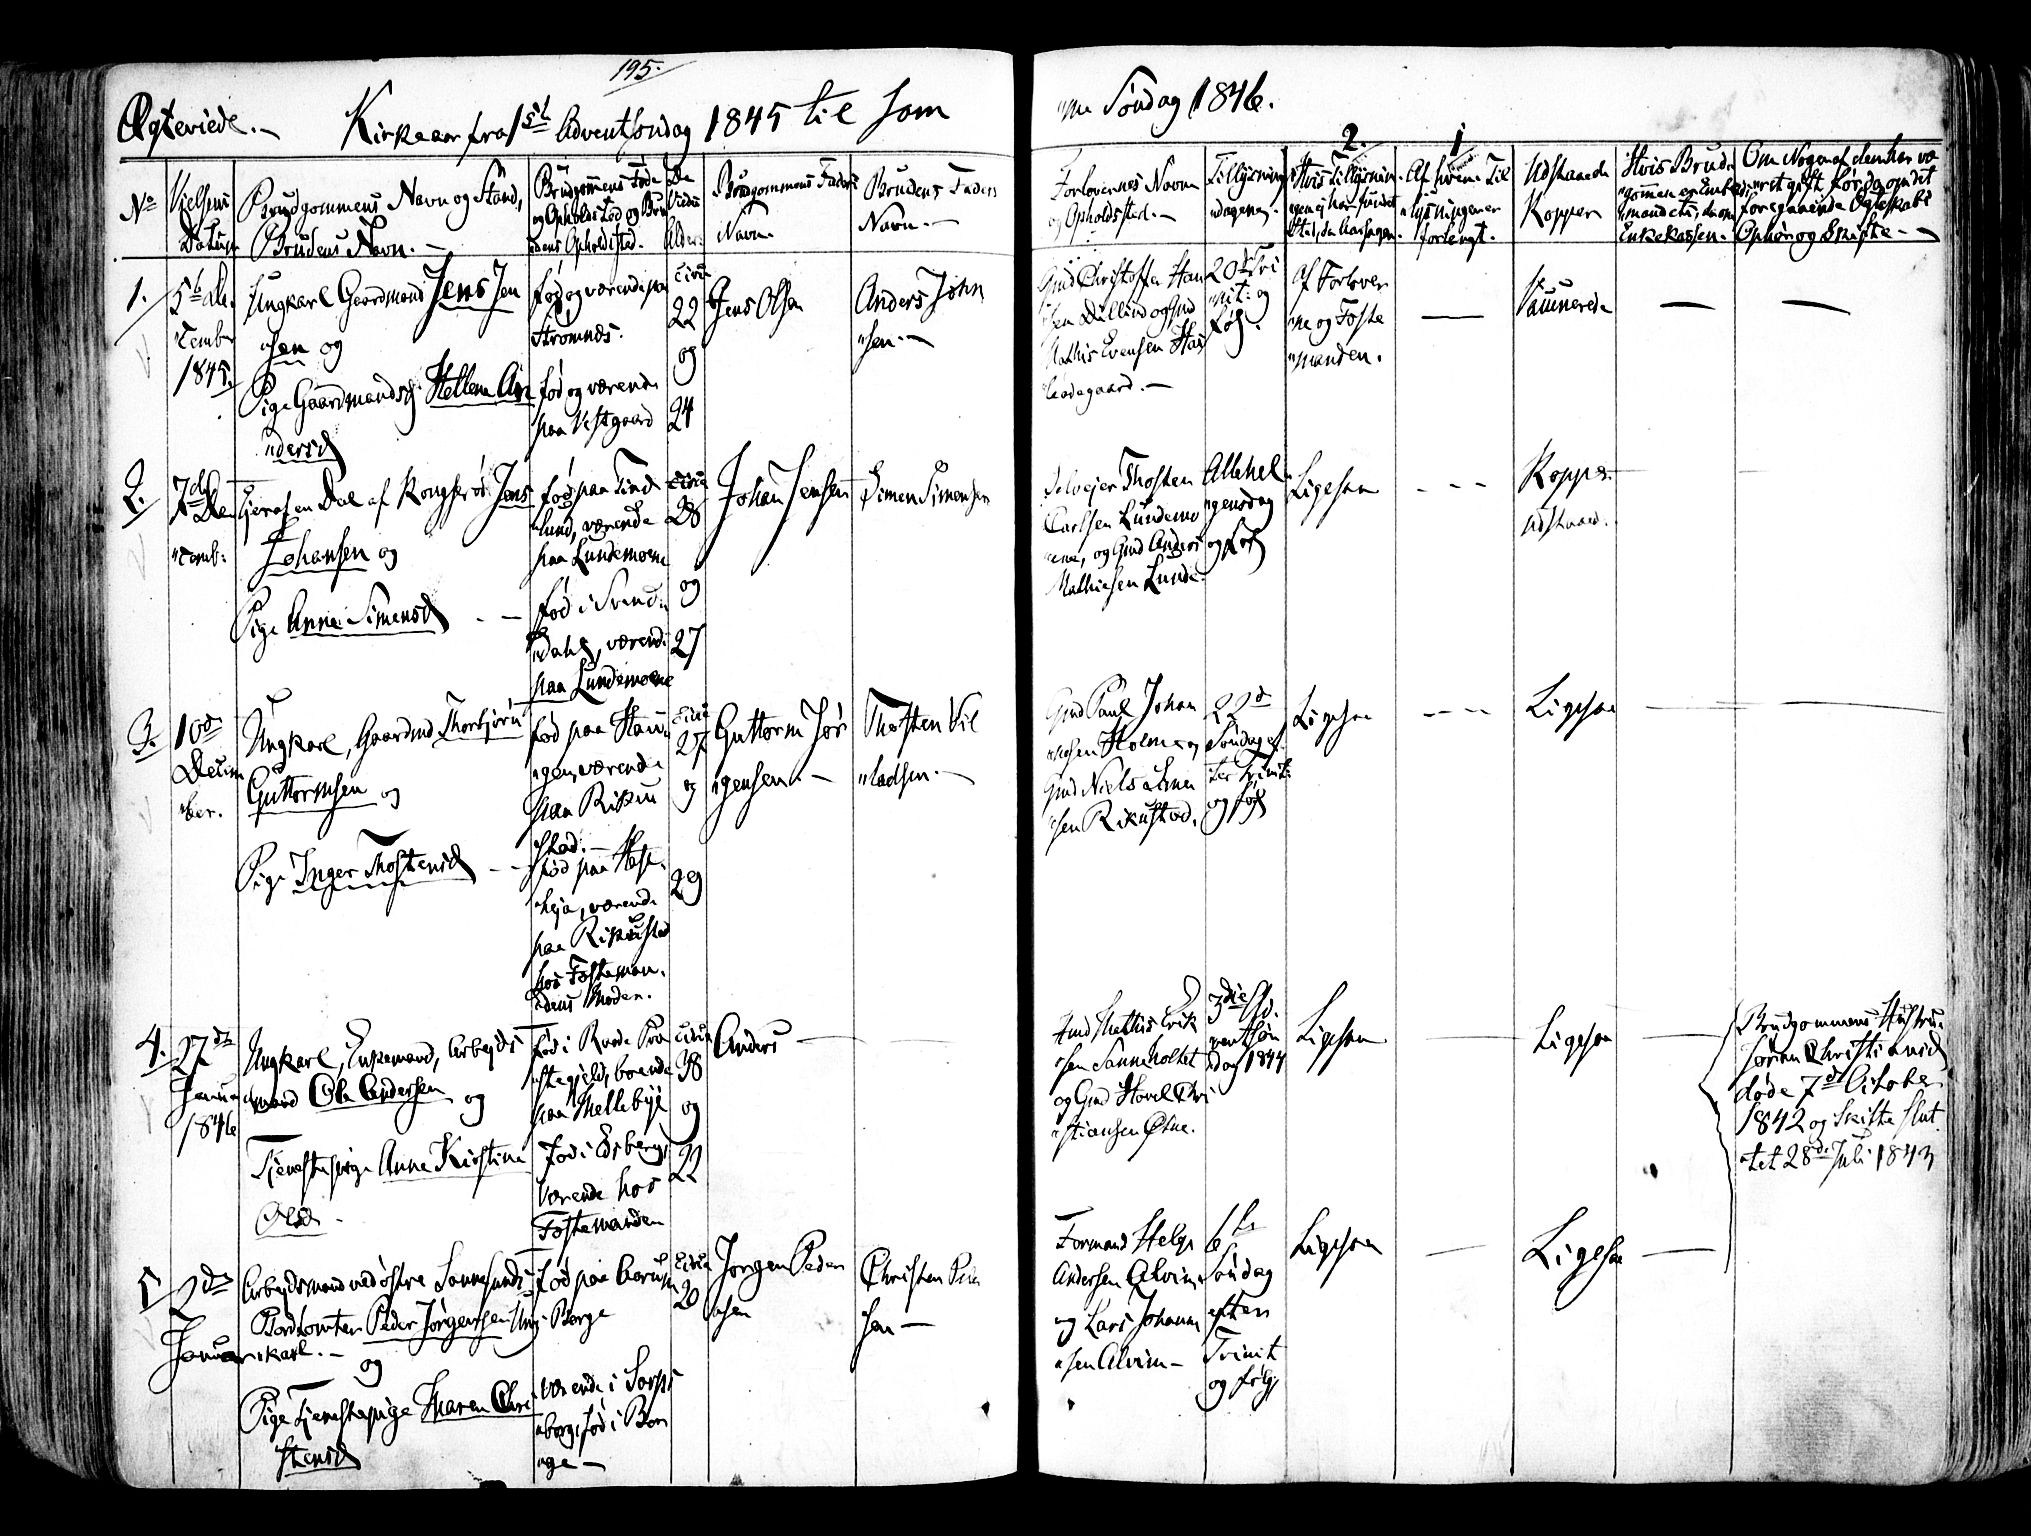 195.
Ægteviede.— Kirkeaar fra 1st Adventsøndag 1845 til Sam
me Søndag 1846.
No
Vielsens
Datum
Brudgommens Navn og Stand,
Brudens Navn.—
Brudgommens Føde
og Opholds Sted og Bru
dens Opholdsted.
De
Viedes
Alder.
Brudgommens Faders
Navn.
Brudens Faders
Navn.—
Forlovernes Navn
og Opholdsted.—
Tillysning
dagene.
2.
Hvis Tillysnin
gen ej har fundet
Sted, da Aarsagen.
1
Af hvem Til
lysningen er
forlangt.
Udstaaede
Kopper
Hvis Brud
gommen er Embeds
mand etc, da om
Enkekassen.
Om Nogen af dem har væ
ret gift før, da om det
foregaaende Ægteskabs
Ophør og Skifte—
1.
5te De
cemb
1845.
Ungkarl Gaardmand Jens Jen
sen og
Pige Gaardmandsd Hellene An
dersd
fød og værende paa
Strømnes.
fød og værende
paa Vestgaard
circa
22
og
24
Jens Olsen
Anders John
sen.—
Gmd Christoffer Han
sen Dullerud og Gmd
Mathis Evensen
20de Tri
nit: og
følg.
Af Forlover
ne og Fæste
manden.
—
Vaccinerede
— —
2.
7de De
cemb:
Jens
Johansen og
Pige Anne Simensd
fød paa
lund, værende
paa Lundemoene
fød i
Dahls, værende
paa Lundemoene
circa
28
og
27
Johan Jensen
Simen Simensen
Selvejer Thosten
Carlsen Lundemo
ene, og Gmd Anders
Mathiesen Lunde.
Allehel
gensdag
og følg
Ligesaa
- - -
Kopper
udstaaed.
3.
10de
Decem
ber.
Ungkarl, Gaardmd Thorbjørn
Guttormsen og
Pige Inger Thostensd
fød paa
gen, værende
paa Riku
stad.—
fød paa
leja, værende
paa Rikustad
hos Fæsteman
dens Moder.
circa
27
og
29
Guttorm Jør
gensen.—
Thosten Vil
ladsen.—
Gmd Paul Johan
nesen Holme og
Gmd Niels
sen Rikustad.
22de
Søndag ef
ter Trinit:
og følg
Ligesaa
- - -
Ligesaa
4.
27de
Janua
1846
Ungkarl, Enkemand, Arbejds
mand Ole Andersen og
Tjenestepige Anne Kirstine
Olsd.
fød i Præ
stegjeld, boende
paa Mellebye
fød i Edsberg,
værende hos
Fæstemanden
circa
38
og
22
Anders —
Hmd Mathis Erik
sen Sanneholtet
og Gmd Hovel Chri
stiansen
3die Ad
ventsøn
dag 1845
Ligesaa
—
Ligesaa
—
Brudgommens Hustrue
Christiansd
døde 7de Octobe
1842 og Skifte slut
tet 28de Juli 1843
5
2de
Januar
Arbejdsmand ved Østre Sannesunds
Bordtomter Peder Jørgensen Ung
karl.—
og
Pige Tjenestepige Maren Chri
stensd
fød paa
Borge
værende i Sarps
borg, fød i Bor
ge—
circa
20
Jørgen Peder
sen
Christen Peder
sen—
Formand Helge
Andersen Alvim
og Lars Johanne
sen Alvim—
6te
Søndag
efter
Trinit
og følg
Ligesaa
—
Ligesaa
—